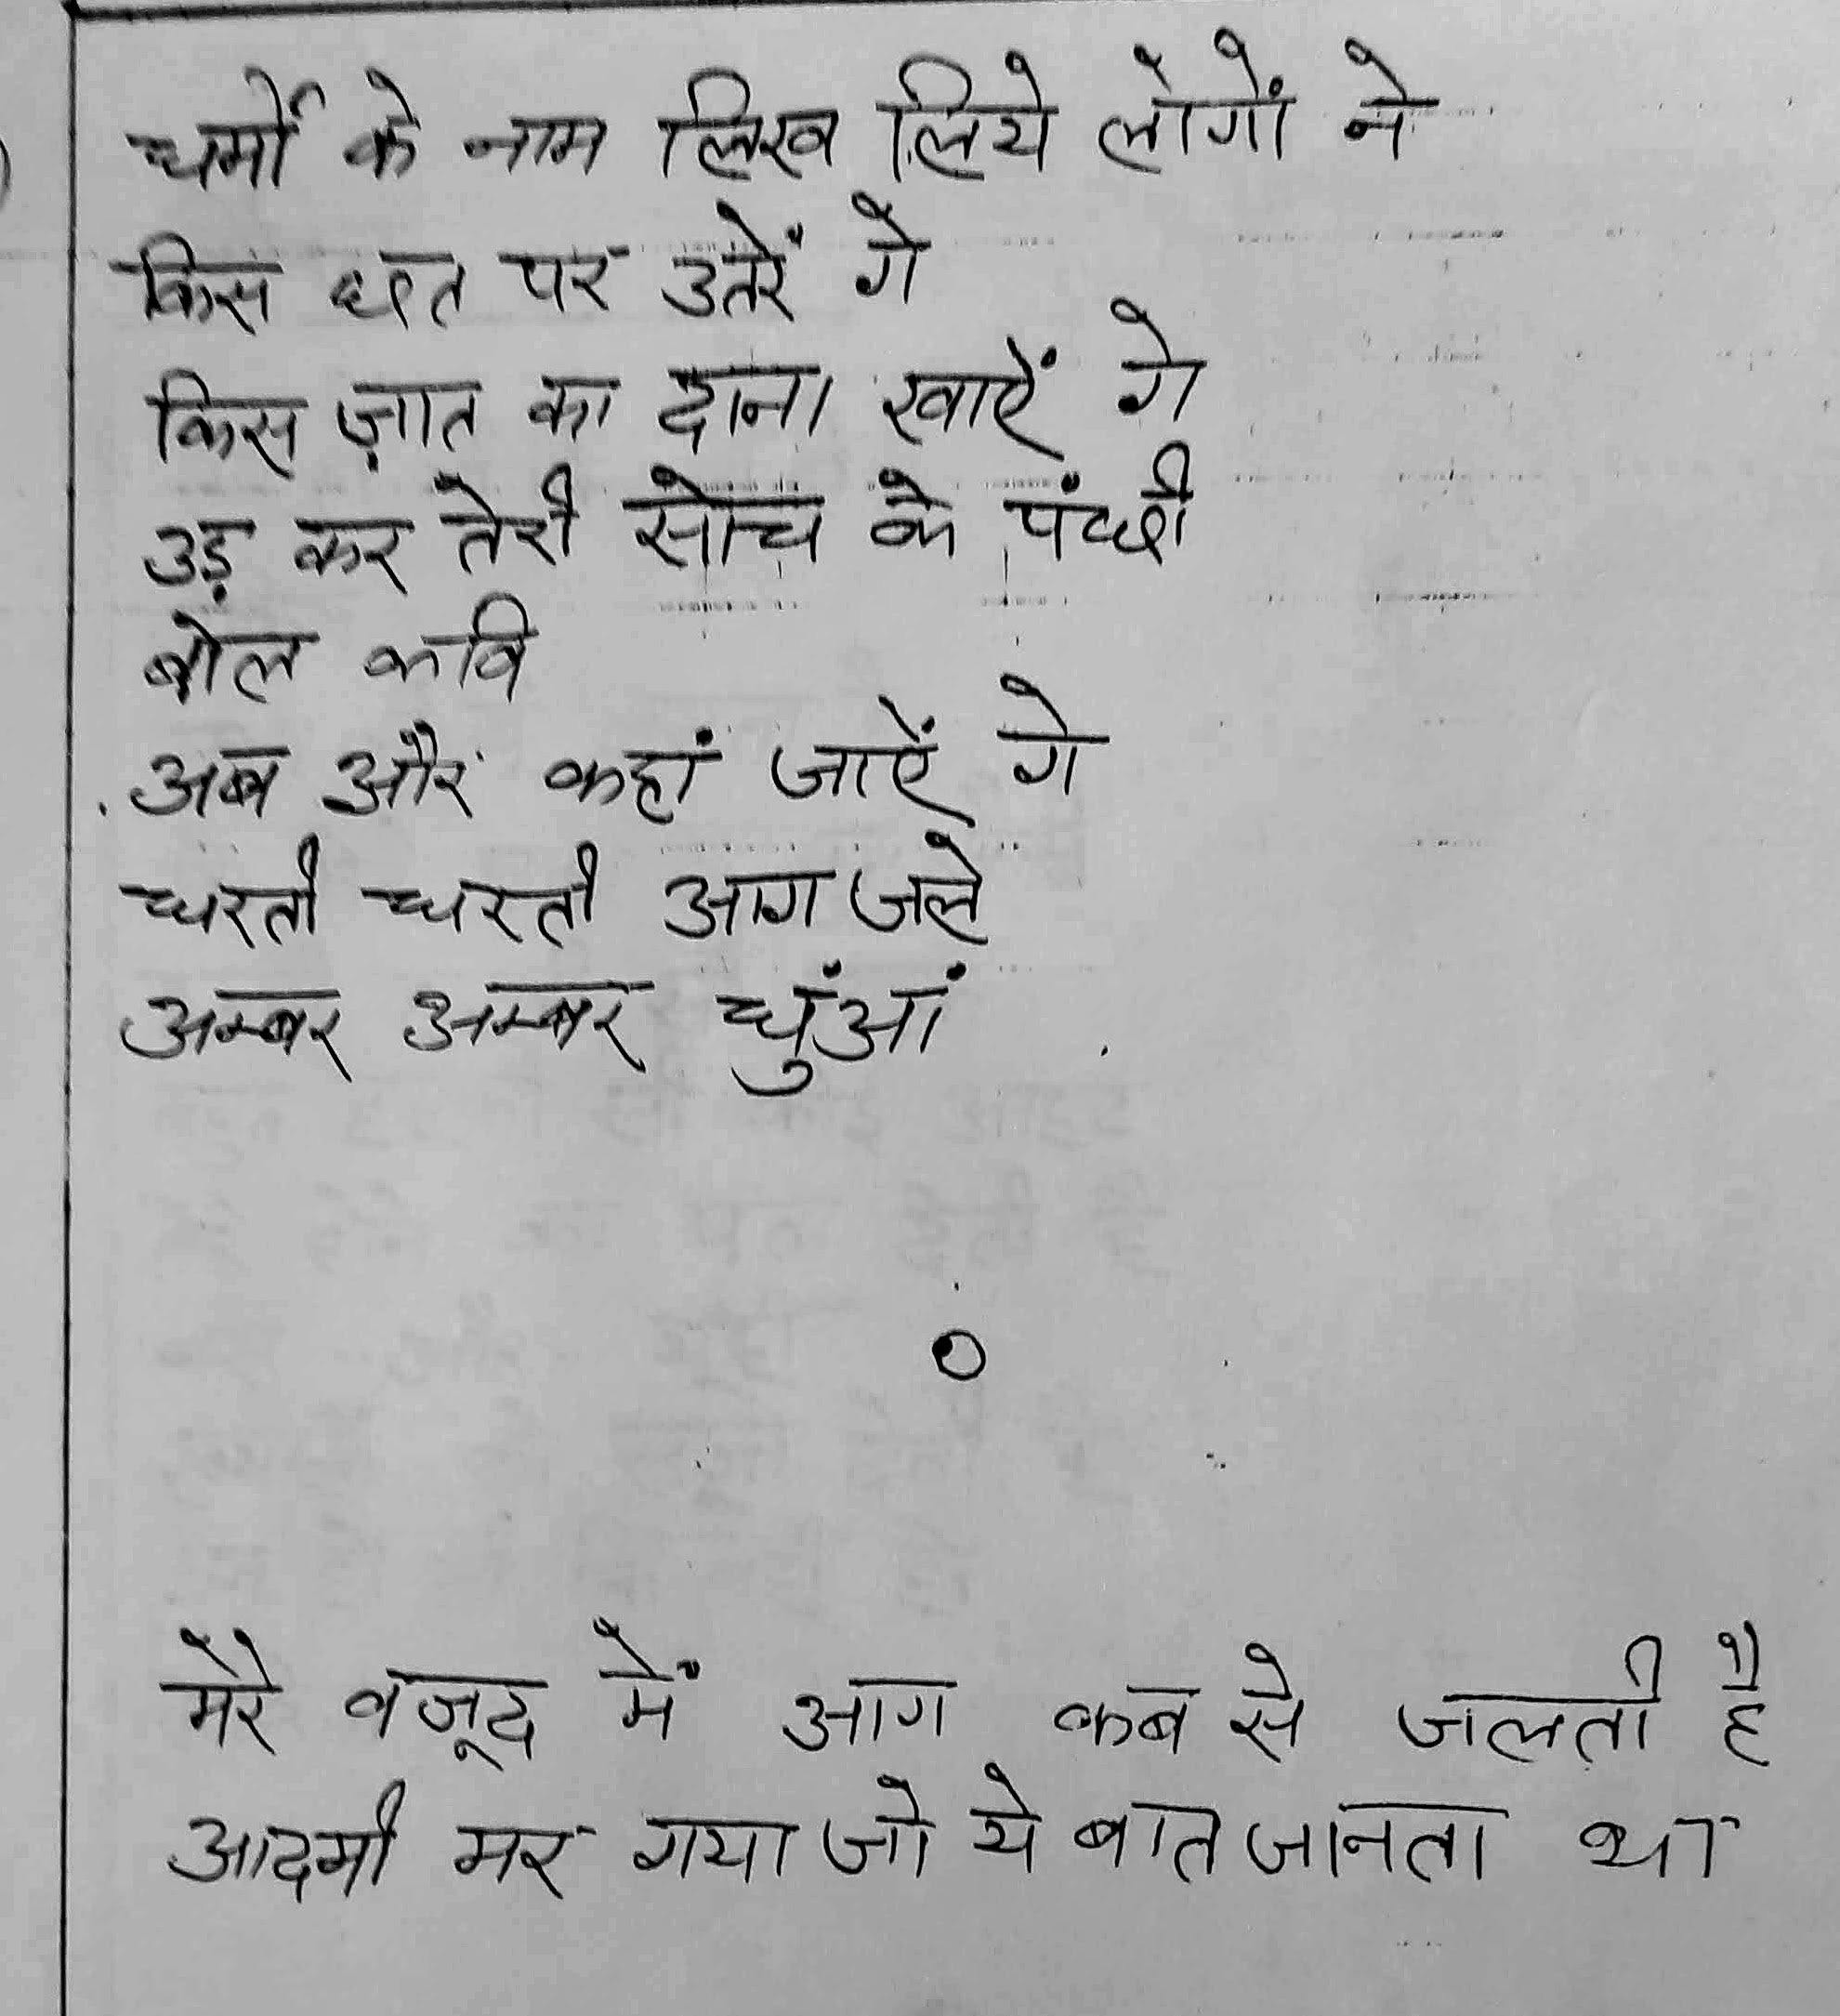 धर्मों के नाम लिख लिये लोगों ने
किस छत पर उतरें गे
किस ज़ात का दाना खाऐं गे
उड़ कर तेरी सोच के पंच्छी
बोल कवि
अब और कहां जाऐं गे
धरती धरती आग जले
अम्बर अम्बर धुंआं
मेरे वजूद में आग कब से जलती है
आदमी मर गया जो ये बात जानता था